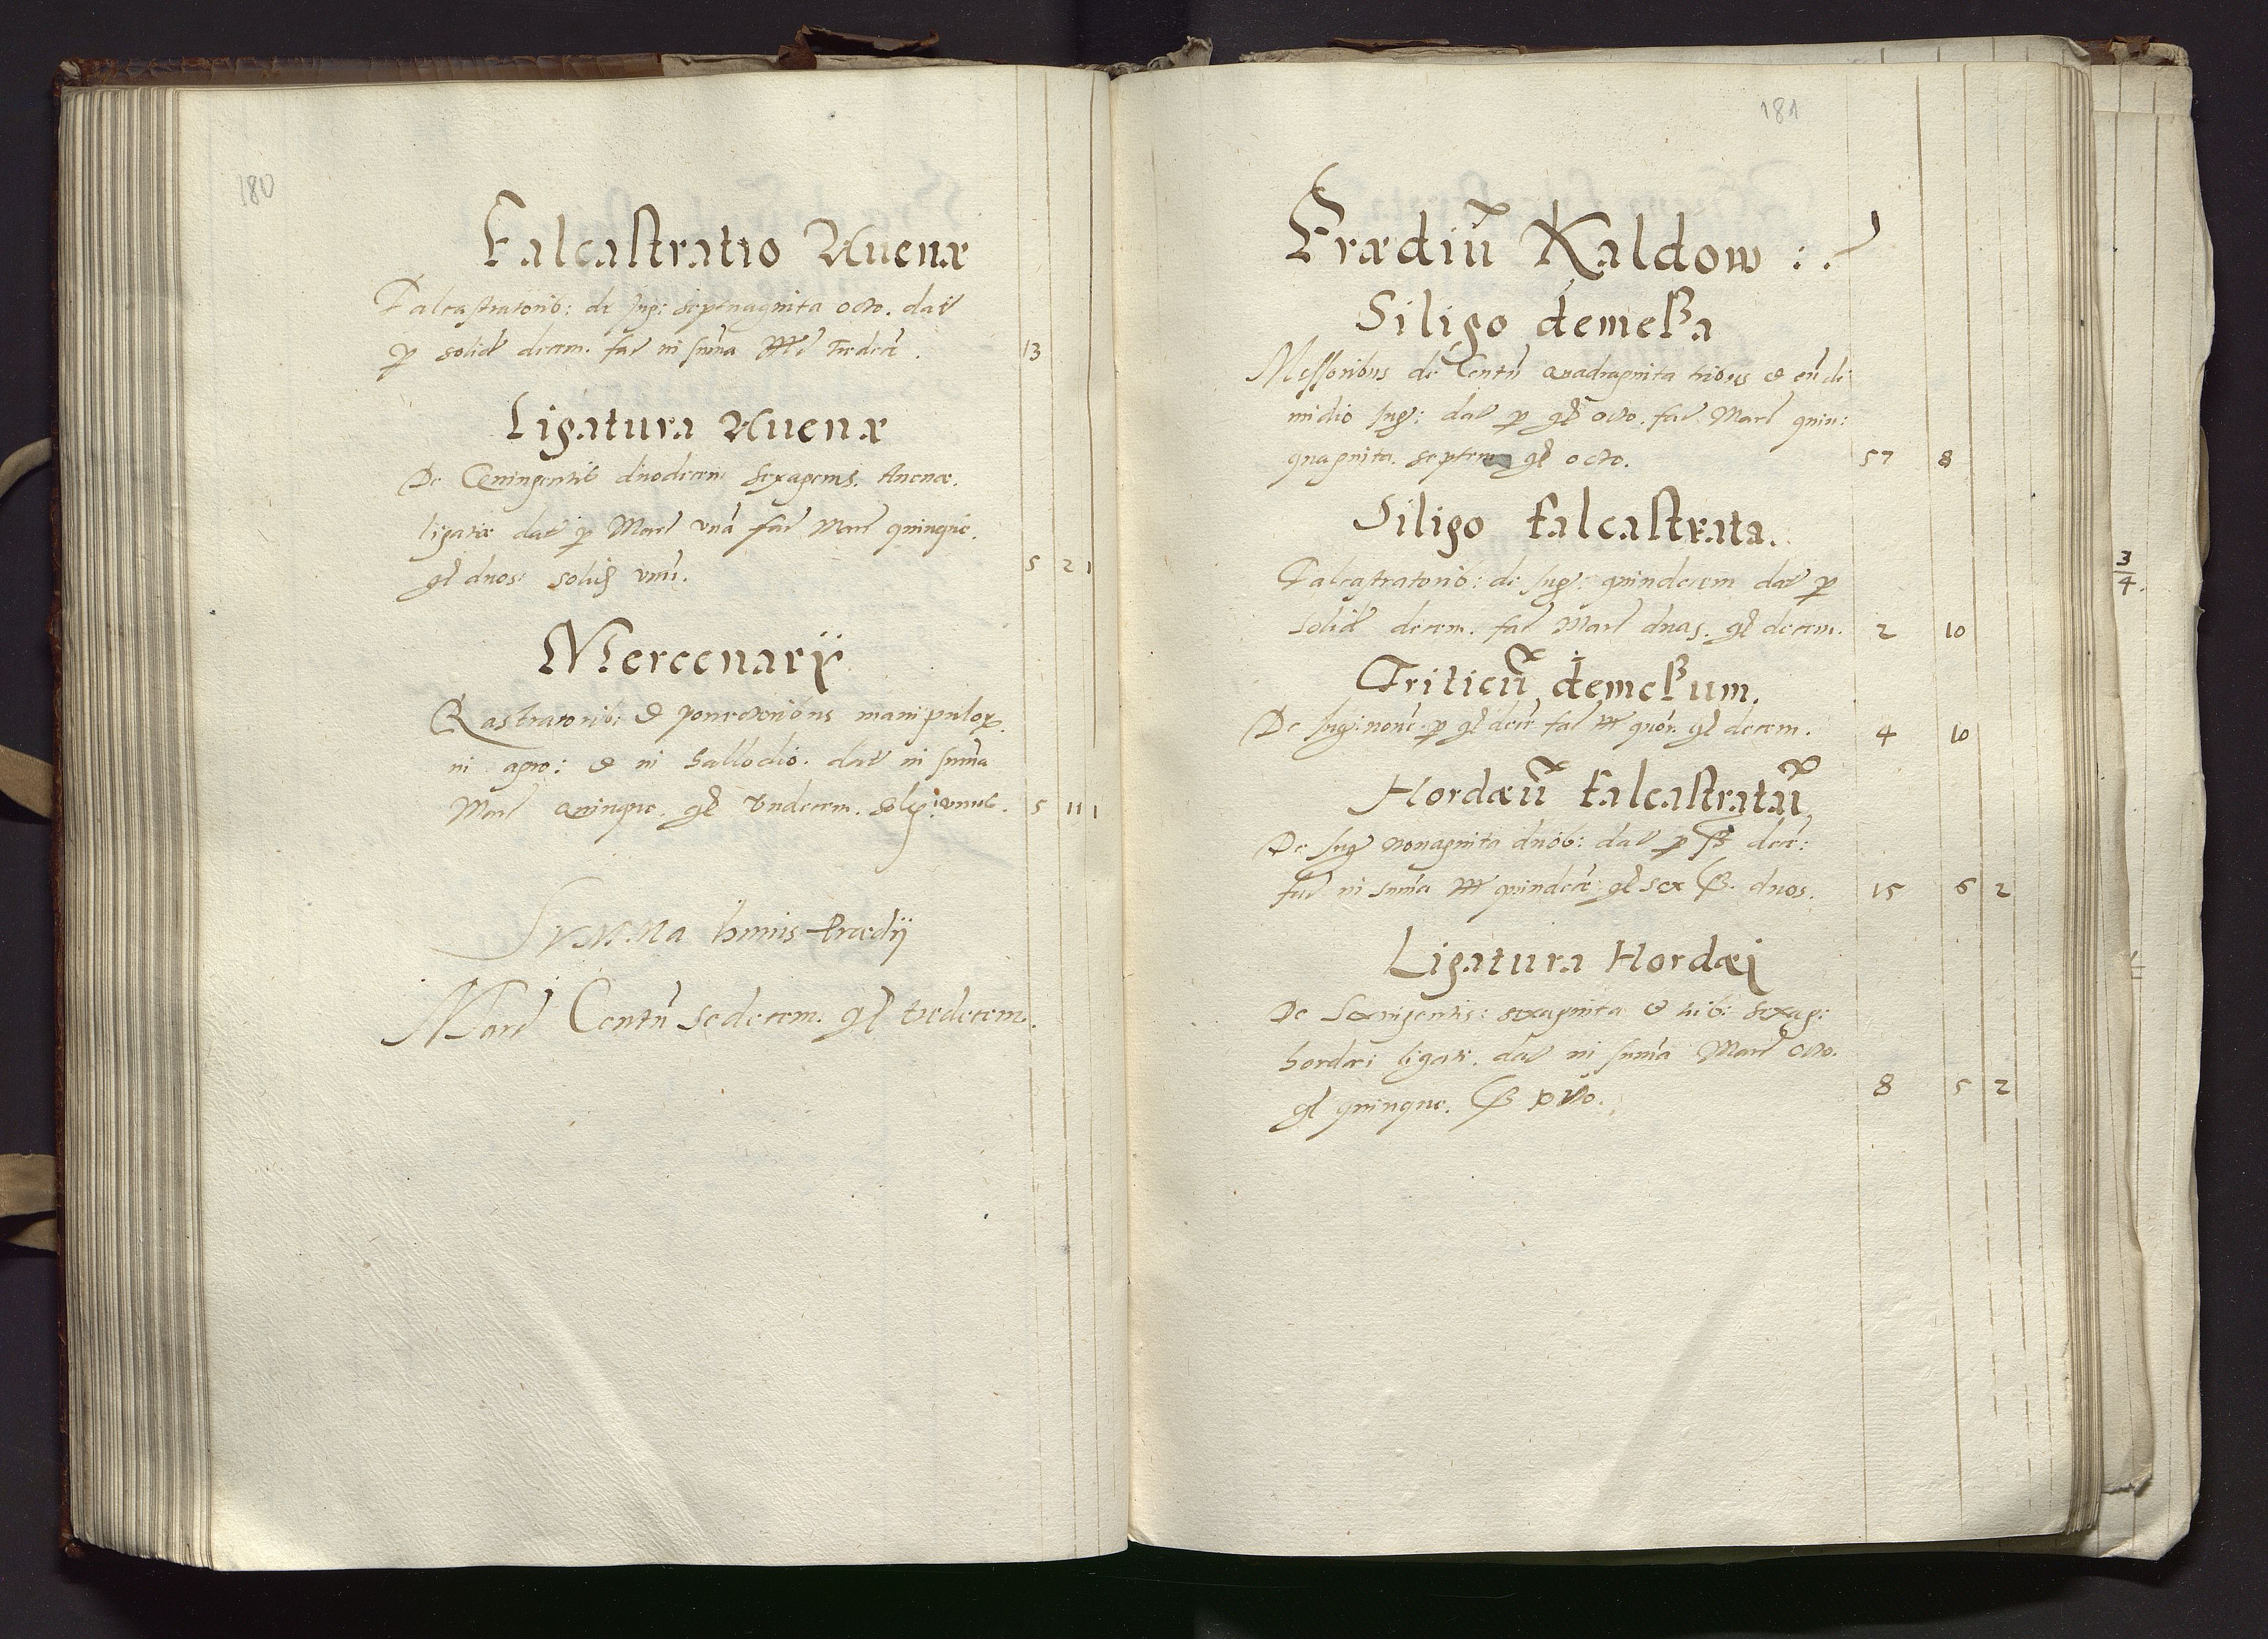 180
Falcastratio Auenæ
Falcastratorib: de Jug: septuaginta octo. dat
p solid decem. fac in suma M tredecē. 13
Ligatura Auenæ
De Quingentis duodecem sexagenis. Auenæ.
ligatæ dat p Marc vnā fac Marc quinque.
gr duos. solid vnū. 5 2 1
Mercenarij
Rastratorib: & manipulor
in agro: & in hallodio. dat in suma
Marc quinque. gr vndecem. solid: vnus. 5 11 1
SVMMA huius Prædij
Marc Centū sedecem. gr tredecem.
181
Prædiū Kaldow :.
Siligo demeßa
Messoribus de Centū quadraginta tribus & cū di
midio Jug: dat p gr octo. fac Marc quin:
quaginta. septem gr octo. 57 8
Siligo falcastrata.
Falcastratorib: de Jug: quindecem dat p
solid decem. fac Marc duas. gr decem. 2 10
Triticū demeßum.
De Jug: nouē p gr decē fac M quōr. gr decem. 4 10
Hordæū falcastratū
De Jug nonaginta duob: dat p ß decē:
fac in suma M quindecē gr sex ß. duos. 15 6 2
Ligatura Hordæi
De Sexingentis: sexaginta & trib: sexag:
hordæi ligati. dat in suma Marc octo.
gr quinque. ß 8 5 2
3
4.